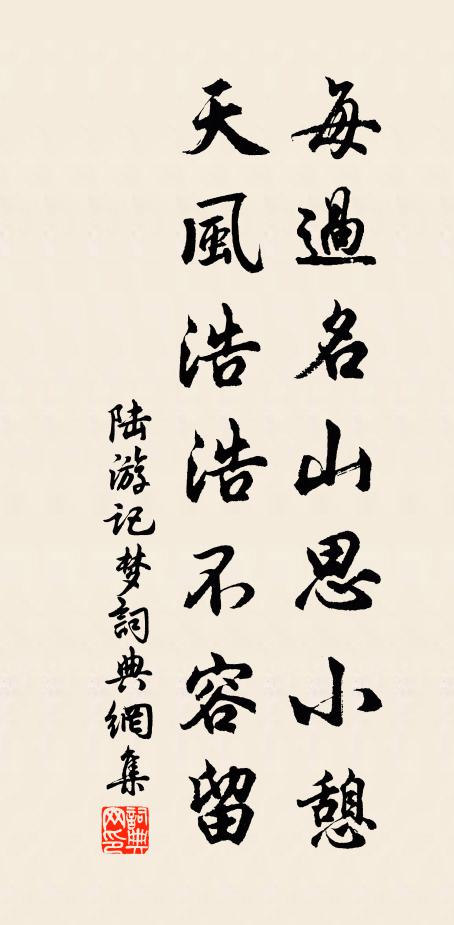 每過名山思小憩
天風浩浩不容留
陆游记梦詞典網集
詞典网印